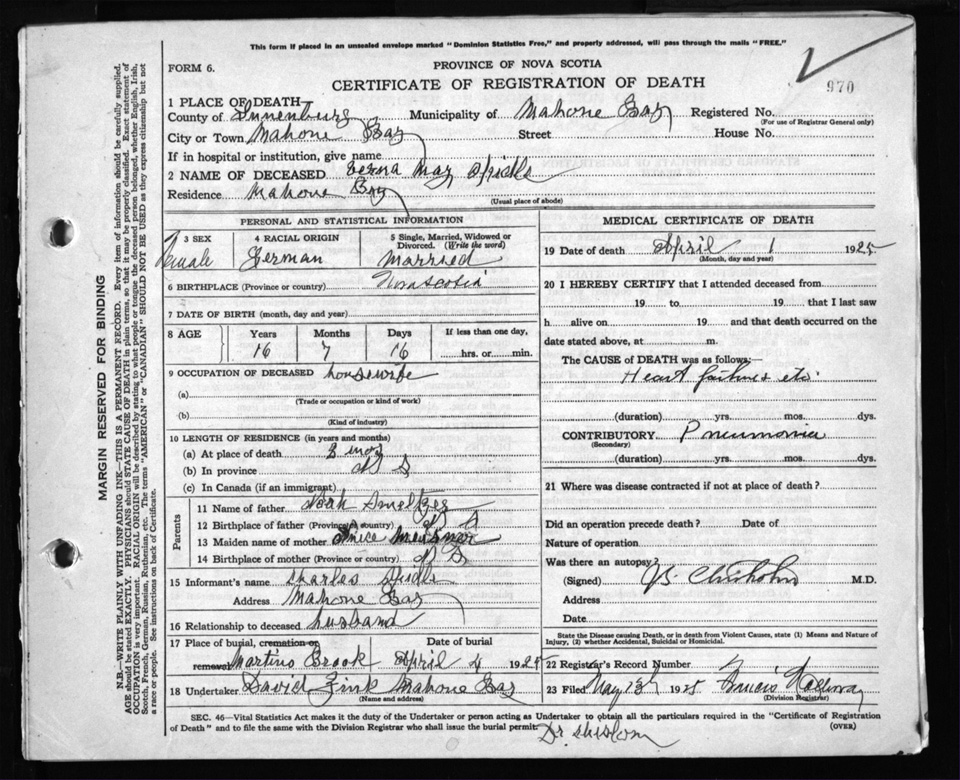 This form if placed in an unsealed envelope marked "Dominion Statistics Free," and properly addressed, will pass through the mails "FREE."
FORM 6.
PROVINCE OF NOVA SCOTIA
CERTIFICATE OF REGISTRATION OF DEATH
970
1 PLACE OF DEATH
County of Lunenburg Municipality of Mahone Bay Registered No.
(For use of Registrar General only)
City or Town Mahone Bay Street House No.
If in hospital or institution, give name
2 NAME OF DECEASED Verna May Spidle
Residence Mahone Bay
(Usual place of abode)
PERSONAL AND STATISTICAL INFORMATION
3 SEX Female
4 RACIAL ORIGIN German
5 Single, Married, Widowed or Divorced. (Write the word) Married
6 BIRTHPLACE (Province or country) Nova Scotia
7 DATE OF BIRTH (month, day and year)
8 AGE Years Months Days If less than one day,
16 7 16 hrs. or min.
9 OCCUPATION OF DECEASED housewife
(a)
(Trade or occupation or kind of work)
(b)
(Kind of industry)
10 LENGTH OF RESIDENCE (in years and months)
(a) At place of death 3 mos
(b) In province N S
(c) In Canada (if an immigrant)
Parents
11 Name of father Noah Smeltzer
12 Birthplace of father (Province or country) N S
13 Maiden name of mother
14 Birthplace of mother (Province or country) N S
15 Informant's name Charles Spidle
Address Mahone Bay
16 Relationship to deceased husband
17 Place of burial, cremation or removal Martins Brook Date of burial April 4 1925
18 Undertaker David Zink Mahone Bay
(Name and address)
MEDICAL CERTIFICATE OF DEATH
19 Date of death April 1 1925
(Month, day and year)
20 I HEREBY CERTIFY that I attended deceased from
19 to 19 that I last saw
h alive on 19 and that death occurred on the
date stated above, at m.
The CAUSE of DEATH was as follows:—
Heart failure etc
(duration) yrs. mos. dys.
CONTRIBUTORY Pneumonia
(Secondary)
(duration) yrs. mos. dys.
21 Where was disease contracted if not at place of death?
Did an operation precede death? Date of
Nature of operation
Was there an autopsy?
(Signed) Chisholm M.D.
Address
Date
State the Disease causing Death, or in death from Violent Causes, state (1) Means and Nature of Injury, (2) whether Accidental, Suicidal or Homicidal.
22 Registrar's Record Number
23 Filed May 1925
(Division Registrar)
SEC. 46—Vital Statistics Act makes it the duty of the Undertaker or person acting as Undertaker to obtain all the particulars required in the "Certificate of Registration
of Death" and to file the same with the Division Registrar who shall issue the burial permit. (OVER)
Dr
MARGIN RESERVED FOR BINDING
N.B.—WRITE PLAINLY WITH UNFADING INK—THIS IS A PERMANENT RECORD. Every item of information should be carefully supplied.
AGE should be stated EXACTLY. PHYSICIANS should STATE CAUSE OF DEATH in plain terms, so that it may be properly classified. Exact statement of
OCCUPATION is very important. RACIAL ORIGIN will be described by stating to what people or tongue the deceased person belonged, whether English, Irish,
Scotch, French, German, Russian, Ruthenian, etc. The terms "AMERICAN" or "CANADIAN" SHOULD NOT BE USED as they express citizenship but not
a race or people. See instructions on back of Certificate.